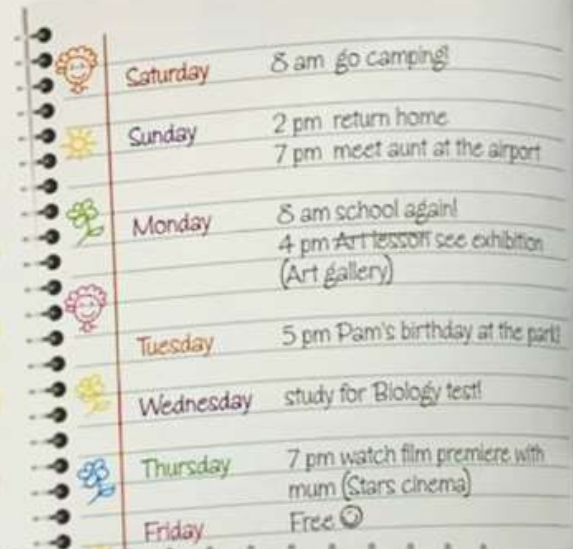 Saturday 8 am go camping!
Sunday 2 pm return home
7 pm meet aunt at the airport
Monday 8 am school again!
4 pm Art lesson see exhibition
(Art gallery)
Tuesday 5 pm Pam's birthday at the park!
Wednesday study for Biology test!
Thursday 7 pm watch film premiere with
mum (Stars cinema)
Friday Free